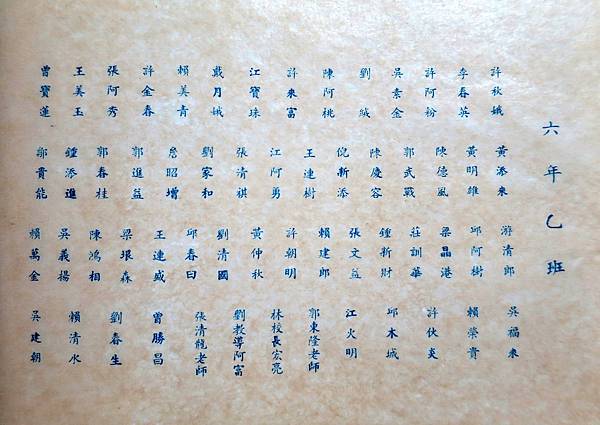 六年乙班
許秋娥
李春英
許阿粉
吳素金
劉絨
陳阿桃
許來富
江寶珠
戴月娥
賴美青
許金春
張阿秀
王美玉
曾寶蓮
黃添來
黃明雄
陳德風
郭武戰
陳慶容
倪新添
王連樹
江阿勇
張清祺
劉家和
詹昭增
郭進益
郭春桂
鍾添進
鄔貴能
游清郎
邱阿樹
梁晶港
莊訓華
鍾新財
張文益
賴建郎
許朝明
黃仲秋
劉清國
邱春曰
王連盛
梁琅森
陳鴻相
吳義揚
賴萬金
吳福來
賴榮貴
許伙炎
邱木城
江火明
郭東隆老師
林校長宏亮
劉教導阿富
張清龍老師
曾勝昌
劉春生
賴清水
吳建朝